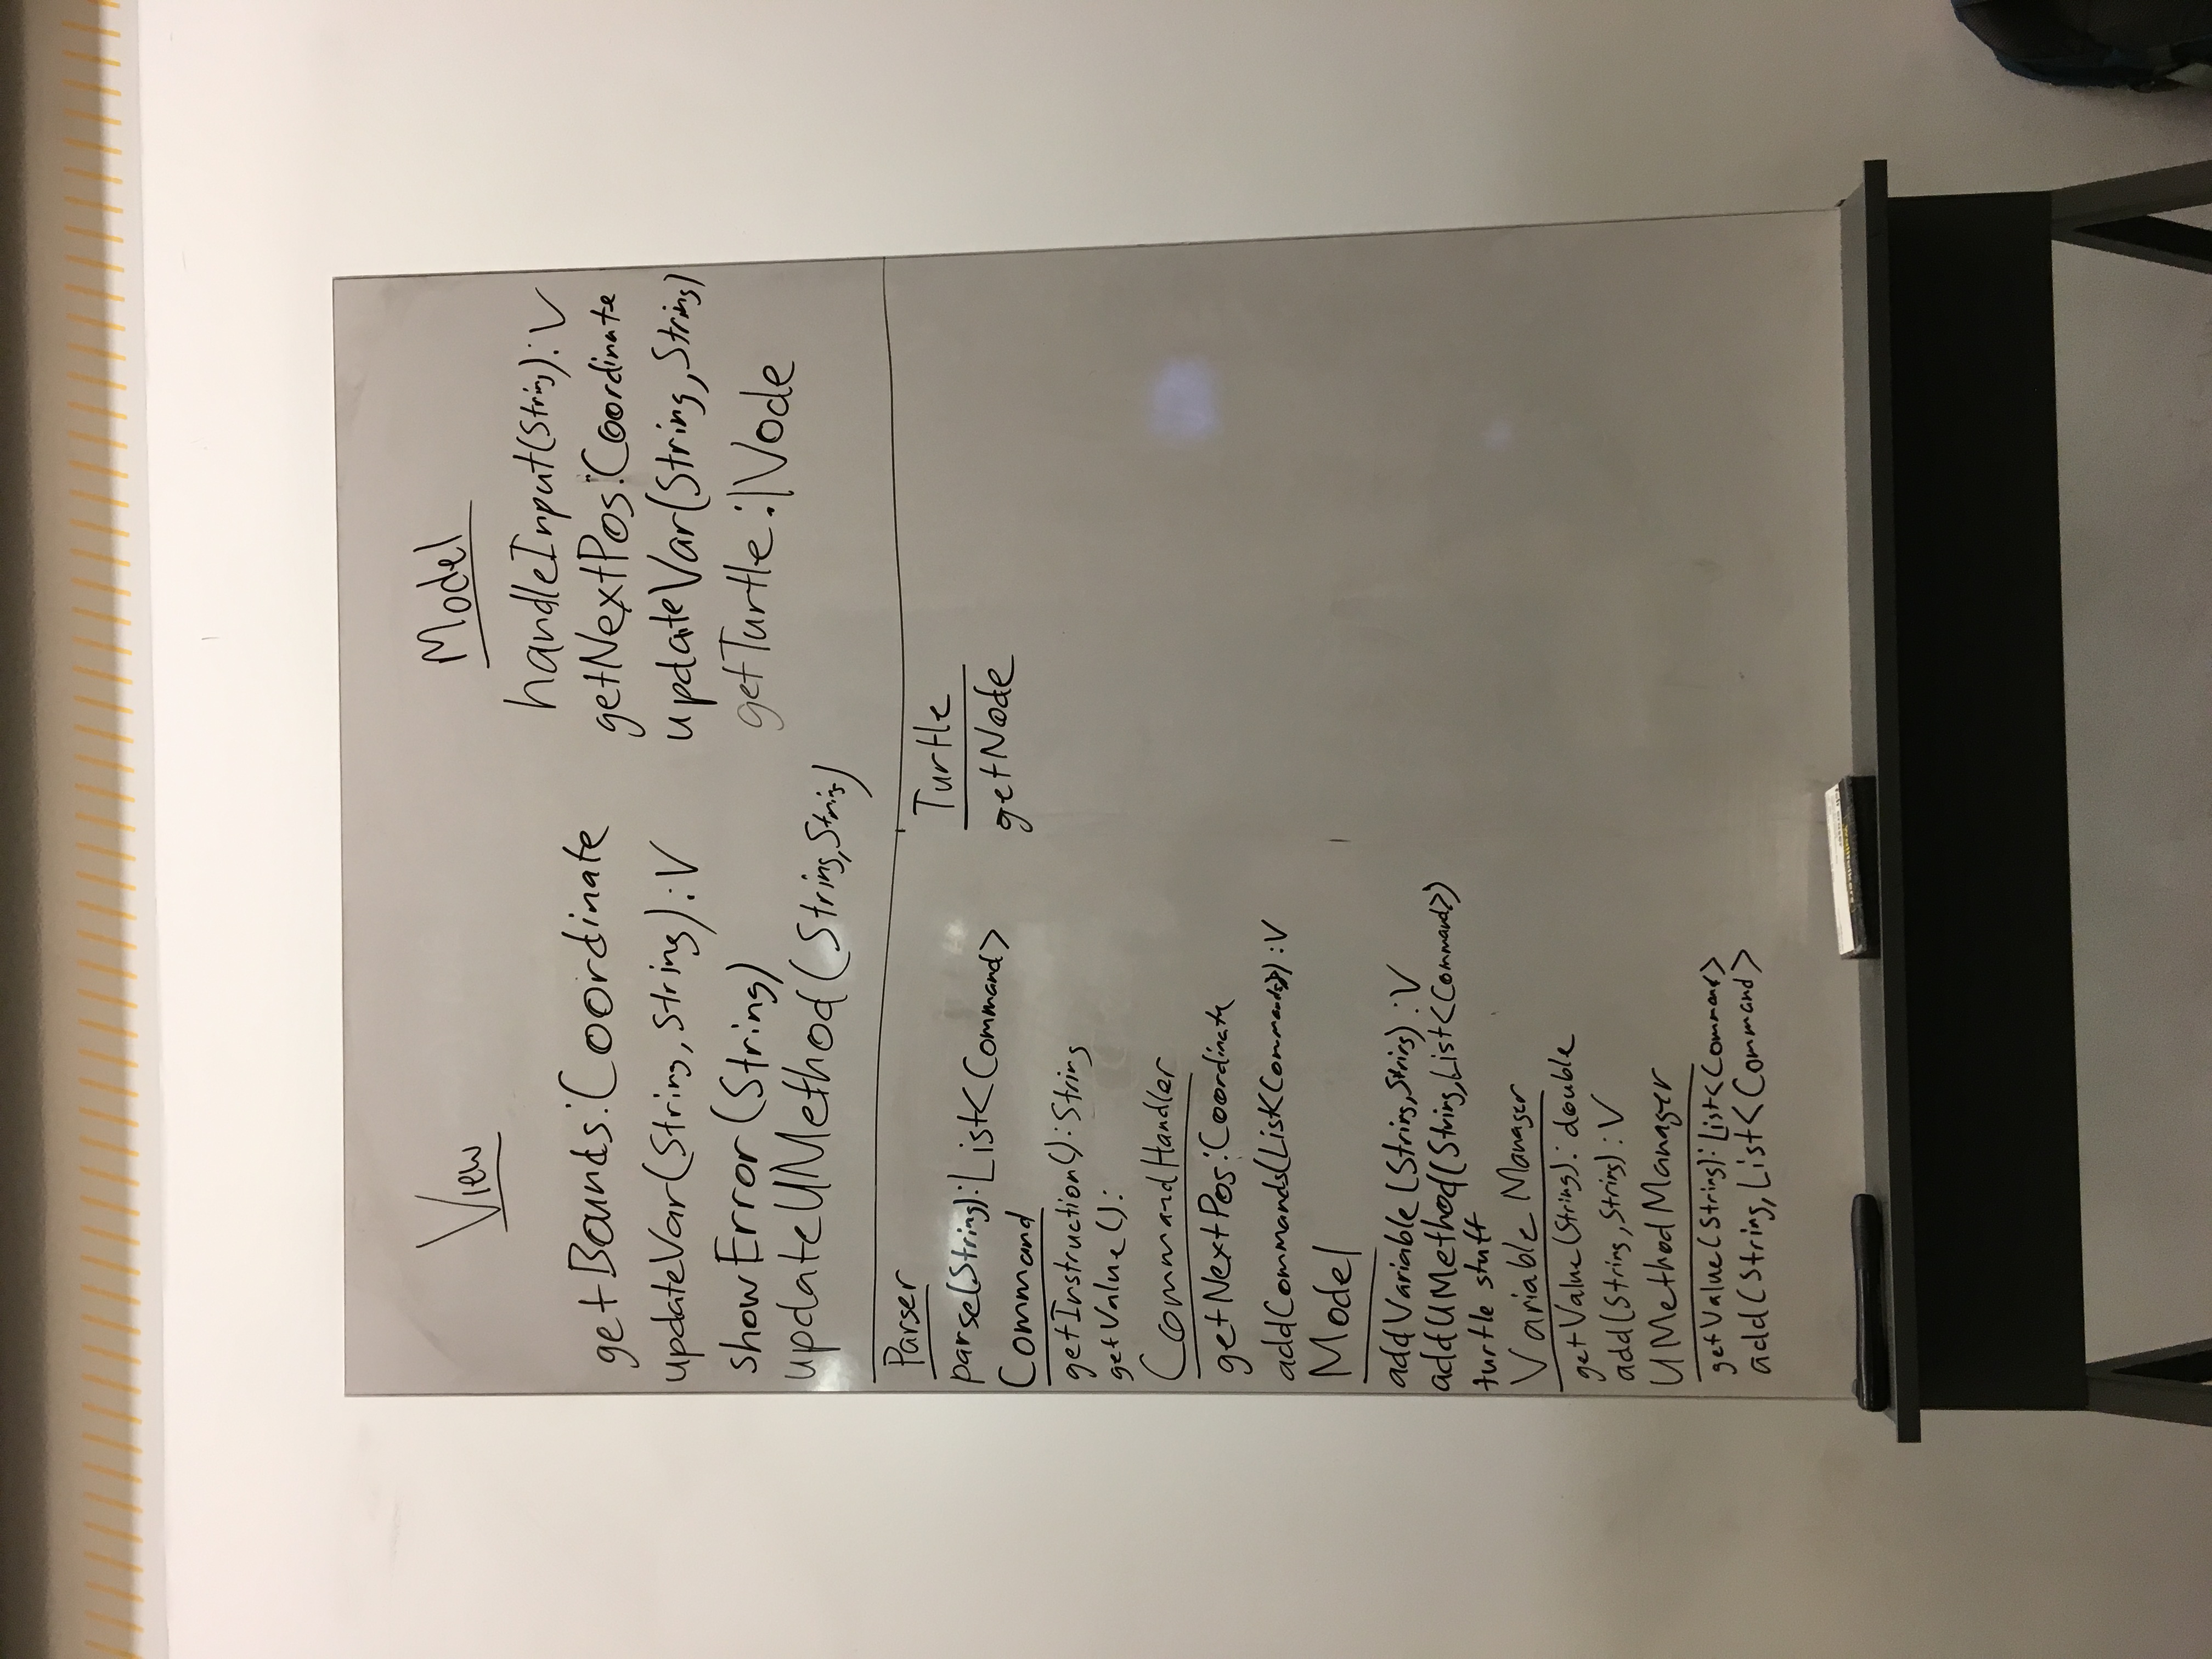 View
getBounds:Coordinate
updateVar(String, String):V
showError(String)
updateUMethod(String,String)
Model
handleInput(String):V
getNextPos:Coordinate
updateVar(String,String)
getTurtle:Node
Parser
parse(String):List<Command>
Command
getInstruction():String
getValue():
CommandHandler
getNextPos:Coordinate
addCommands(List<Commands>):V
Model
addVariable(String,String):V
addUMethod(String,List<Command>)
turtle stuff
Variable Manager
getValue(String):double
add(String,String):V
UMethodManager
getValue(String):List<Command>
add(String,List<Command>
Turtle
getNode